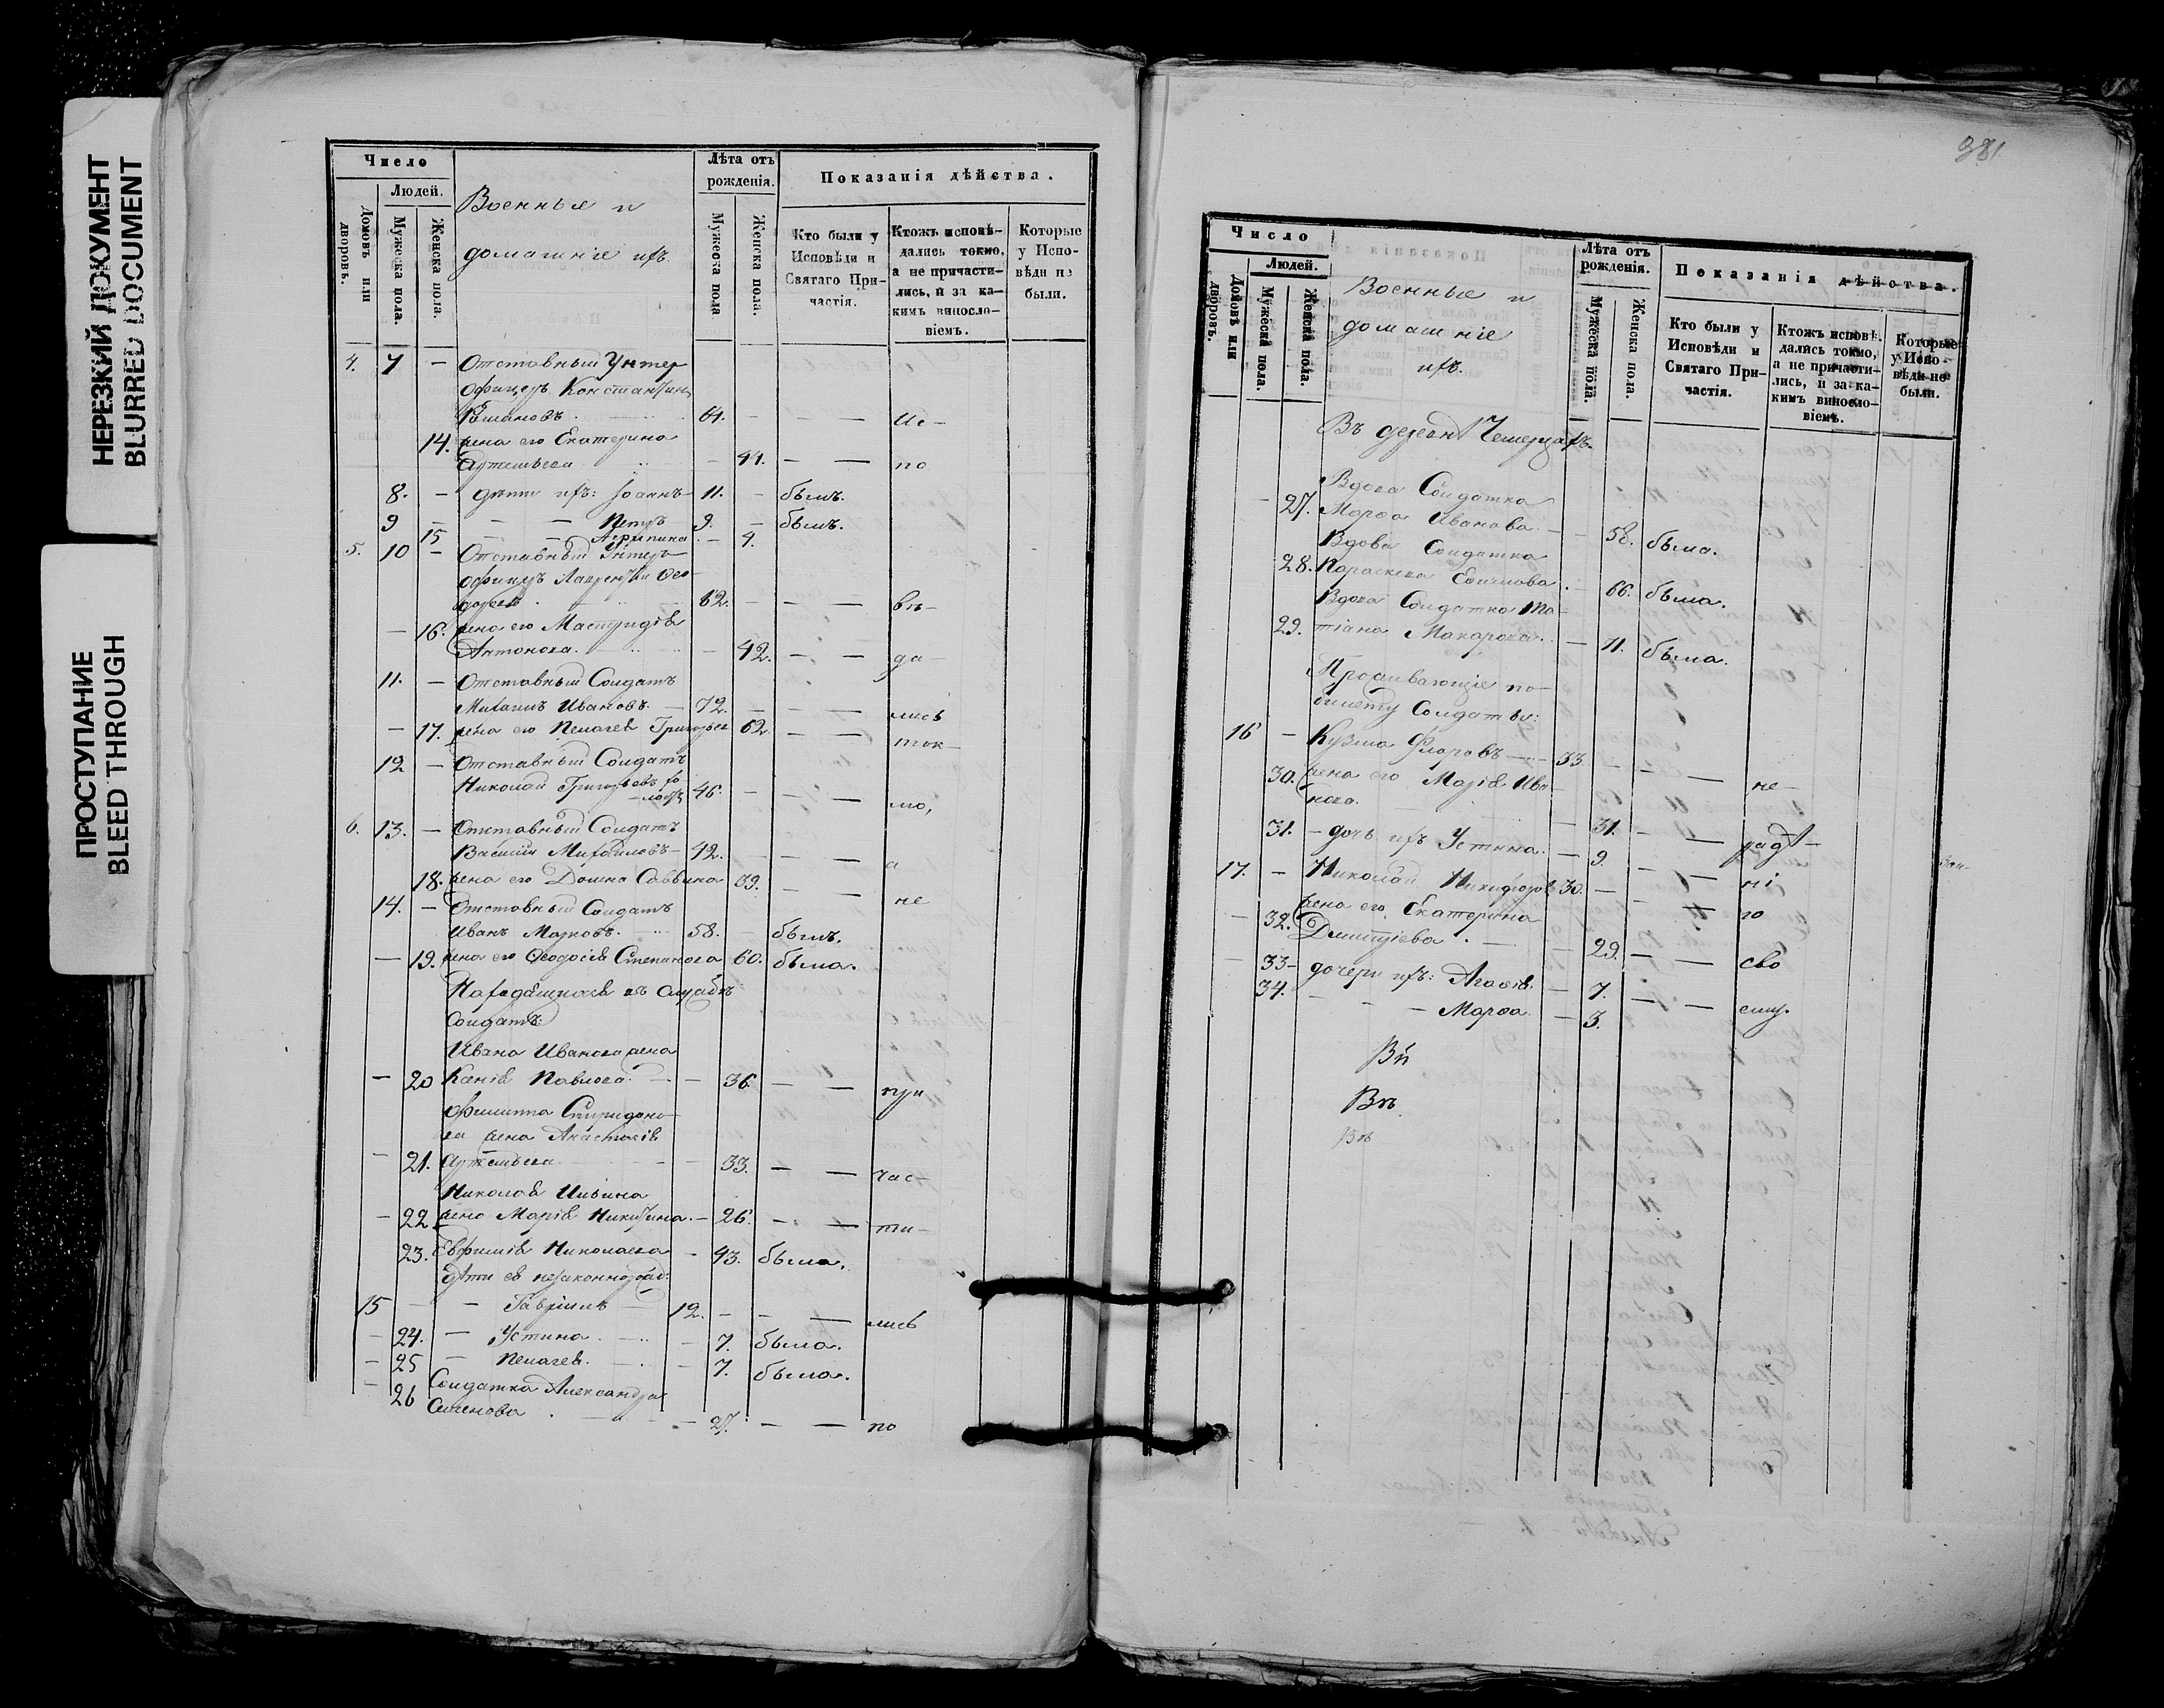 НЕРЕЗКИЙ ДОКУМЕНТ
BLURRED DOCUMENT
ПРОСТУПАНИЕ
BLEED THROUGH
Число
Людей.
Домовъ или дворовъ.
Мужеска пола.
Женска пола.
Военные и
домашніе ихъ.
Лѣта отъ рожденія.
Мужеска пола
Женска пола.
Показанія дѣйства.
Кто были у Исповѣди и Святаго Причастія.
Ктожъ исповѣдались токмо, а не причастились, и за какимъ винословіемъ.
Которые у Исповѣди не были.
4. 7 — Отставный Унтер
офицеръ Константинъ
61. — — Ис-
14. жена его Екатерина
Артемьева — 41. — — по
8. — дѣти ихъ: Іоаннъ 11. — былъ.
9 — — Петръ 9. — былъ.
15 — — Агрипина — 4.
5. 10 — Отставный Унтеръ
офицеръ Лаврентій Ѳео-
62. — — вѣ-
— 16. жена его
Антонова. — 42. — — да-
11. — Отставный Солдатъ
Михаилъ Ивановъ — 72. — — лись
— 17. жена его Пелагея Григорьева 62 — — ток-
12 — Отставный Солдатъ
Николай Григорьевъ хо-
лостъ 46. — — мо,
6. 13. — Отставный Солдатъ
Василій Михайловъ — 42. — — а
18. жена его Домна Саввина 39. — — не
14. — Отставный Солдатъ
Иванъ Марковъ. 58. — былъ.
— 19. жена его Ѳеодосія Степанова 60. была.
Находящихся въ службѣ
Солдатъ:
Ивана Иванова жена
— 20 Ксенія Павлова — 36 — — при
Филиппа Спиридоно-
ва жена Анастасія
— 21. Артемьева — 33. — — час-
Николая Ильина
— 22 жена Марія Никитина — 26. — — ти-
23. Евфимія Николаева — 43. была.
дѣти ея незаконнорожд:
15 — — Гавріилъ 12. — — лись
— 24. — Устина — 7. была.
— 25 — Пелагея. — 7. была.
— 26 Солдатка Александра
Семенова — 27. — — по
381
Число
Людей.
Домовъ или дворовъ.
Мужеска пола.
Женска пола.
Военные и
домашніе
ихъ.
Лѣта отъ рожденія.
Мужеска пола.
Женска пола.
Показанія дѣйства.
Кто были у Исповѣди и Святаго Причастія.
Ктожъ исповѣдались токмо, а не причастились, и за какимъ винословіемъ.
Которые у Исповѣди не были.
Въ
Вдова Солдатка
— 27. Марѳа Иванова — 58. была.
Вдова Солдатка
28. Параскева — 66. была.
Вдова Солдатка Та-
29. тіана Макарова — 71. была.
Проживающіе по
билету Солдаты:
16 — Кузма Флоровъ — 33 — — не-
30. жена его Марія Ива-
нова. — 31. — — радѣ-
31. — дочь ихъ Устина — 9. — — ні-
17. — Николай Никифоровъ 30. — — го
жена его Екатерина
— 32. Димитріева — 29. — — сво
— 33 — дочери ихъ: Агафія — 7. — — ему.
34. — — Марѳа — 3.